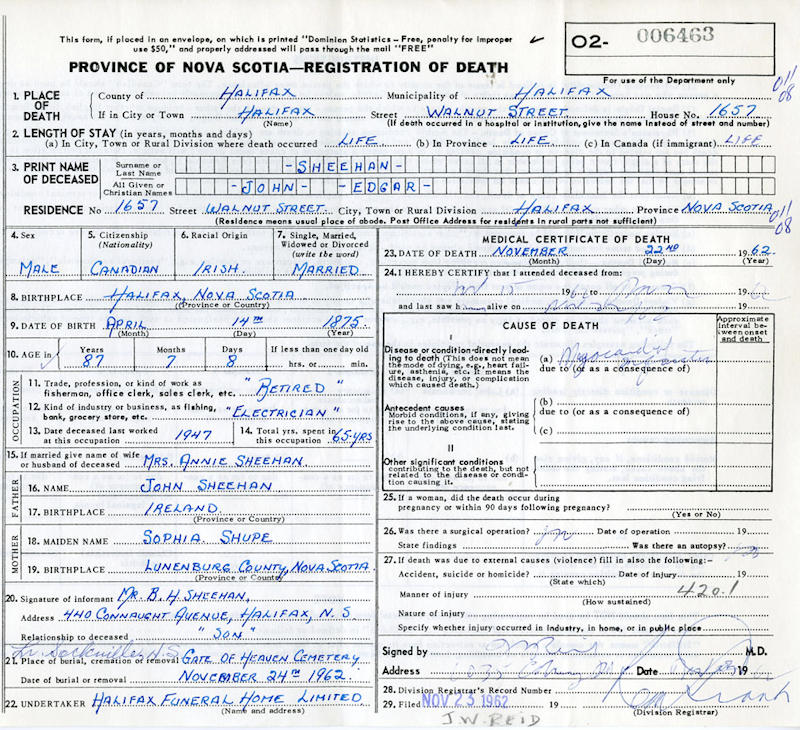 This form, if placed in an envelope, on which is printed "Dominion Statistics – Free, penalty for improper
use $50," and properly addressed will pass through the mail "FREE"
O2- 006463
For use of the Department only
PROVINCE OF NOVA SCOTIA—REGISTRATION OF DEATH
011
08
1. PLACE OF DEATH
County of HALIFAX Municipality of HALIFAX
If in City or Town HALIFAX Street WALNUT STREET House No. 1657
(Name) (If death occurred in a hospital or institution, give the name instead of street and number)
2. LENGTH OF STAY (in years, months and days)
(a) In City, Town or Rural Division where death occurred LIFE (b) In Province LIFE (c) In Canada (if immigrant) LIFE
3. PRINT NAME OF DECEASED
Surname or Last Name -SHEEHAN-
All Given or Christian Names -JOHN- -EDGAR-
RESIDENCE No 1657 Street WALNUT STREET City, Town or Rural Division HALIFAX Province NOVA SCOTIA
011
08
(Residence means usual place of abode. Post Office Address for residents in rural parts not sufficient)
4. Sex MALE
5. Citizenship (Nationality) CANADIAN
6. Racial Origin IRISH.
7. Single, Married, Widowed or Divorced (write the word) MARRIED
8. BIRTHPLACE HALIFAX, NOVA SCOTIA
(Province or Country)
9. DATE OF BIRTH APRIL 14TH 1875.
(Month) (Day) (Year)
10. AGE in Years 87 Months 7 Days 8 If less than one day old hrs. or min.
OCCUPATION
11. Trade, profession, or kind of work as
fisherman, office clerk, sales clerk, etc. "RETIRED"
12. Kind of industry or business, as fishing,
bank, grocery store, etc. "ELECTRICIAN"
13. Date deceased last worked
at this occupation 1947
14. Total yrs. spent in
this occupation 65-YRS
15. If married give name of wife
or husband of deceased MRS. ANNIE SHEEHAN.
FATHER
16. NAME JOHN SHEEHAN
17. BIRTHPLACE IRELAND.
(Province or Country)
MOTHER
18. MAIDEN NAME SOPHIA SHUPE
19. BIRTHPLACE LUNENBURG COUNTY, NOVA SCOTIA
(Province or Country)
20. Signature of informant MR. B. H. SHEEHAN,
Address 440 CONNAUGHT AVENUE, HALIFAX, N.S.
Relationship to deceased "SON"
Lr. Sackville, N.S.
21. Place of burial, cremation or removal GATE OF HEAVEN CEMETERY
Date of burial or removal NOVEMBER 24TH 1962.
22. UNDERTAKER HALIFAX FUNERAL HOME LIMITED
(Name and address)
MEDICAL CERTIFICATE OF DEATH
23. DATE OF DEATH NOVEMBER 22ND 1962.
(Month) (Day) (Year)
24. I HEREBY CERTIFY that I attended deceased from:
15 19 to 19
and last saw h alive on 19
CAUSE OF DEATH
Approximate interval between onset and death
I
Disease or condition directly leading
to death (This does not mean
the mode of dying, e.g., heart failure,
asthenia, etc. It means the
disease, injury, or complication
which caused death.)
(a) Myocardial
due to (or as a consequence of)
Antecedent causes
Morbid conditions, if any, giving
rise to the above cause, stating
the underlying condition last.
(b)
due to (or as a consequence of)
(c)
II
Other significant conditions
contributing to the death, but not
related to the disease or condition
causing it.
25. If a woman, did the death occur during
pregnancy or within 90 days following pregnancy?
(Yes or No)
26. Was there a surgical operation? Date of operation 19
State findings Was there an autopsy?
27. If death was due to external causes (violence) fill in also the following:–
Accident, suicide or homicide? Date of injury 19
(State which)
Manner of injury 420.1
(How sustained)
Nature of injury
Specify whether injury occurred in industry, in home, or in public place
Signed by M.D.
Address Date 19
28. Division Registrar's Record Number
29. Filed NOV 23 1962 19
(Division Registrar)
J.W. REID